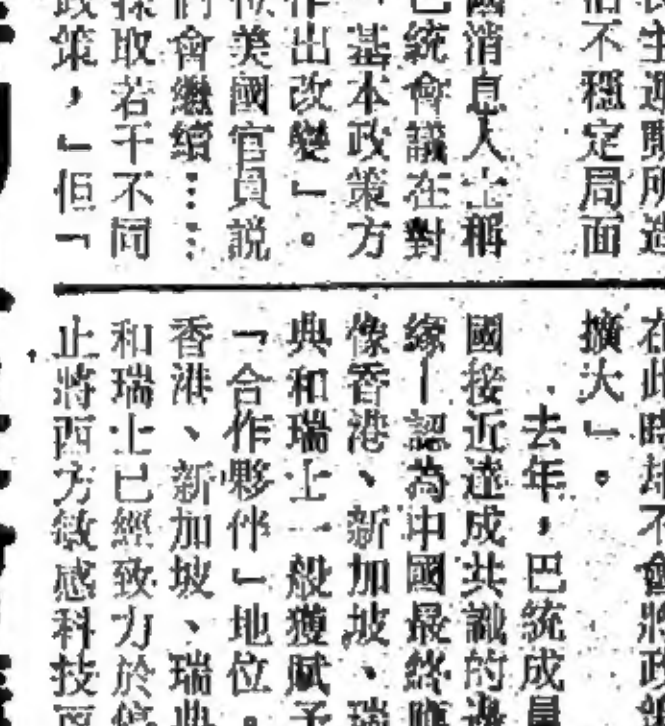 所造
不穩定局面
國消息人士稱
巴統會議在對
、基本政策方
作出改變」。
位美國官員說
們會繼續……
採取若干不同
政策，」但「
在此時不會將政
擴大」。
去年，巴統成員
國接近達成共識的邊
緣—認為中國最終應
像香港、新加坡、瑞
典和瑞士一般獲賦予
「合作夥伴」地位。
香港、新加坡、瑞典
和瑞士已經致力於停
止將西方敏感科技